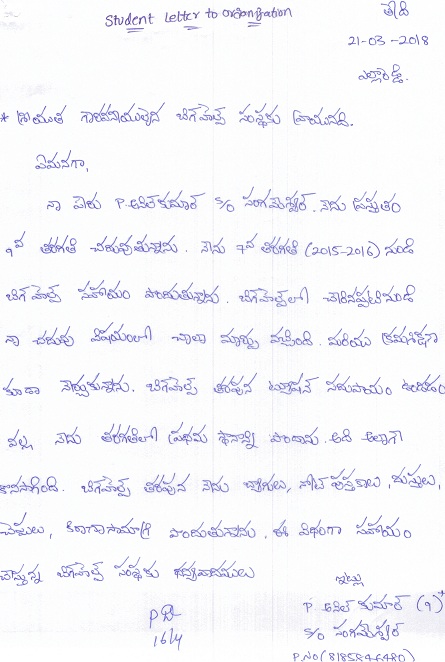 Student Letter to organization
తేది
21-03-2018
ఎల్లారెడ్డి.
* శ్రీయుత గౌరవనీయులైన బిగ్‌హెల్ప్ సంస్థకు వ్రాయునది.
ఏమనగా,
నా పేరు P. అనిల్ కుమార్ S/o సంగమేశ్వర్. నేను ప్రస్తుతం
9వ తరగతి చదువుతున్నాను. నేను 7వ తరగతి (2015-2016) నుండి
బిగ్ హెల్ప్ సహాయం పొందుతున్నాను. బిగ్‌హెల్ప్‌లో చేరినప్పటినుండి
నా చదువు విషయంలో చాలా మార్పు వచ్చింది. మరియు క్రమశిక్షణ
కూడా నేర్చుకున్నాను. బిగ్‌హెల్ప్ తరపున ట్యూషన్ సదుపాయం ఉండటం
వల్ల నేను తరగతిలో ప్రథమ స్థానాన్ని పొందాను. అది అలాగే
కొనసాగింది. బిగ్‌హెల్ప్ తరపున నేను బ్యాగులు, నోట్ పుస్తకాలు, దుస్తులు,
చెప్పులు, కిరాణాసామాగ్రి పొందుతున్నాను, ఈ విధంగా సహాయం
చేస్తున్న బిగ్‌హెల్ప్ సంస్థకు ధన్యవాదములు
ఇట్లు
P. అనిల్ కుమార్ (9)
S/o సంగమేశ్వర్
16/4
P.No (8185846480)